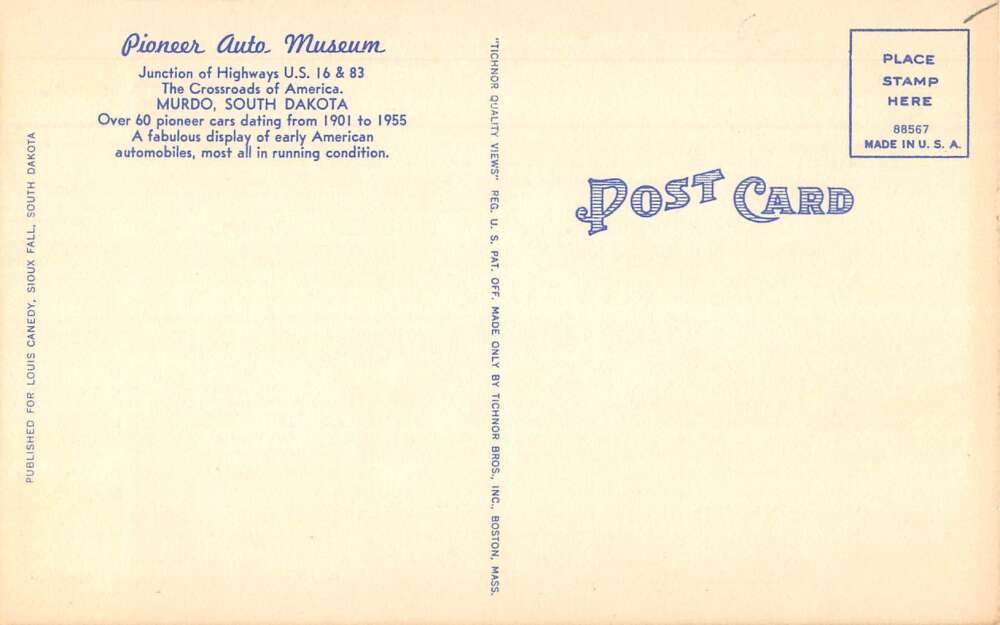 Pioneer Auto Museum
Junction of Highways U.S. 16 & 83
The Crossroads of America.
MURDO, SOUTH DAKOTA
Over 60 pioneer cars dating from 1901 to 1955
A fabulous display of early American
automobiles, most all in running condition.
PUBLISHED FOR LOUIS CANEDY, SIOUX FALL, SOUTH DAKOTA
"TICHNOR QUALITY VIEWS" REG. U. S. PAT. OFF. MADE ONLY BY TICHNOR BROS., INC., BOSTON, MASS.
POST CARD
PLACE
STAMP
HERE
88567
MADE IN U. S. A.